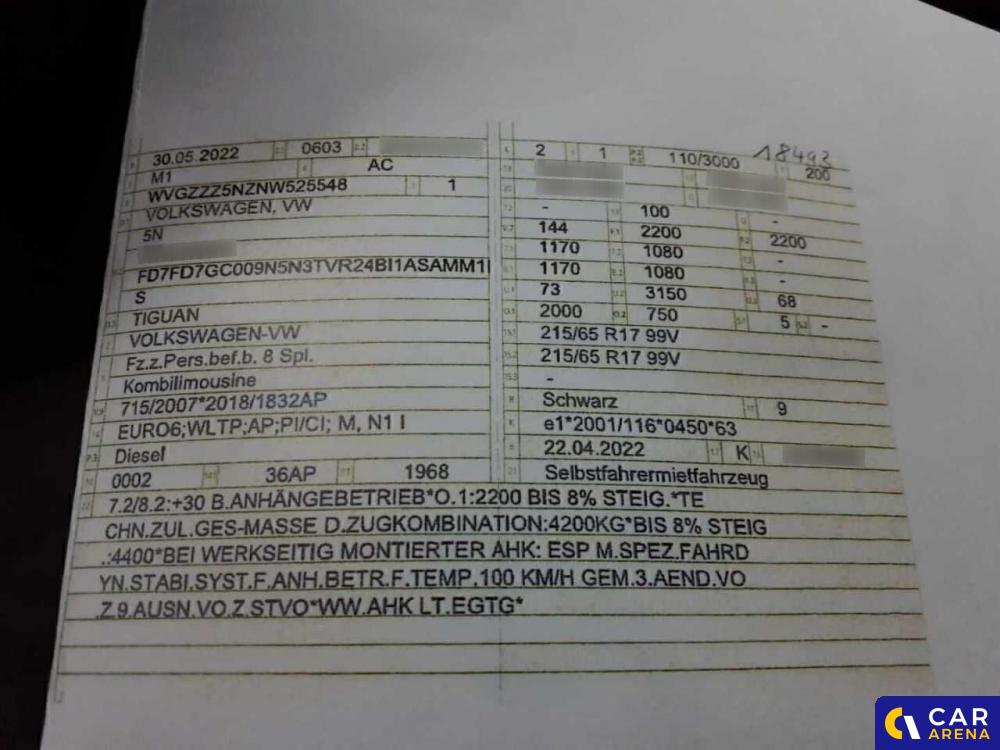 30.05.2022 0603
M1 AC
WVGZZZ5NZNW525548 1
VOLKSWAGEN, VW
5N
FD7FD7GC009N5N3TVR24BI1ASAMM1
S
TIGUAN
VOLKSWAGEN-VW
Fz.z.Pers.bef.b. 8 Spl.
Kombilimousine
715/2007*2018/1832AP
EURO6;WLTP;AP;PI/CI; M, N1 I
Diesel
0002 36AP 1968
2 1 110/3000 200
18493
- 100 -
144 2200 2200
1170 1080 -
1170 1080 -
73 3150 68
2000 750 5 -
215/65 R17 99V
215/65 R17 99V
-
Schwarz 9
e1*2001/116*0450*63
22.04.2022 K
Selbstfahrermietfahrzeug
7.2/8.2:+30 B.ANHÄNGEBETRIEB*O.1:2200 BIS 8% STEIG.*TE
CHN.ZUL.GES-MASSE D.ZUGKOMBINATION:4200KG*BIS 8% STEIG
.:4400*BEI WERKSEITIG MONTIERTER AHK: ESP M.SPEZ.FAHRD
YN.STABI.SYST.F.ANH.BETR.F.TEMP.100 KM/H GEM.3.AEND.VO
.Z.9.AUSN.VO.Z.STVO*WW.AHK LT.EGTG*
CAR
ARENA